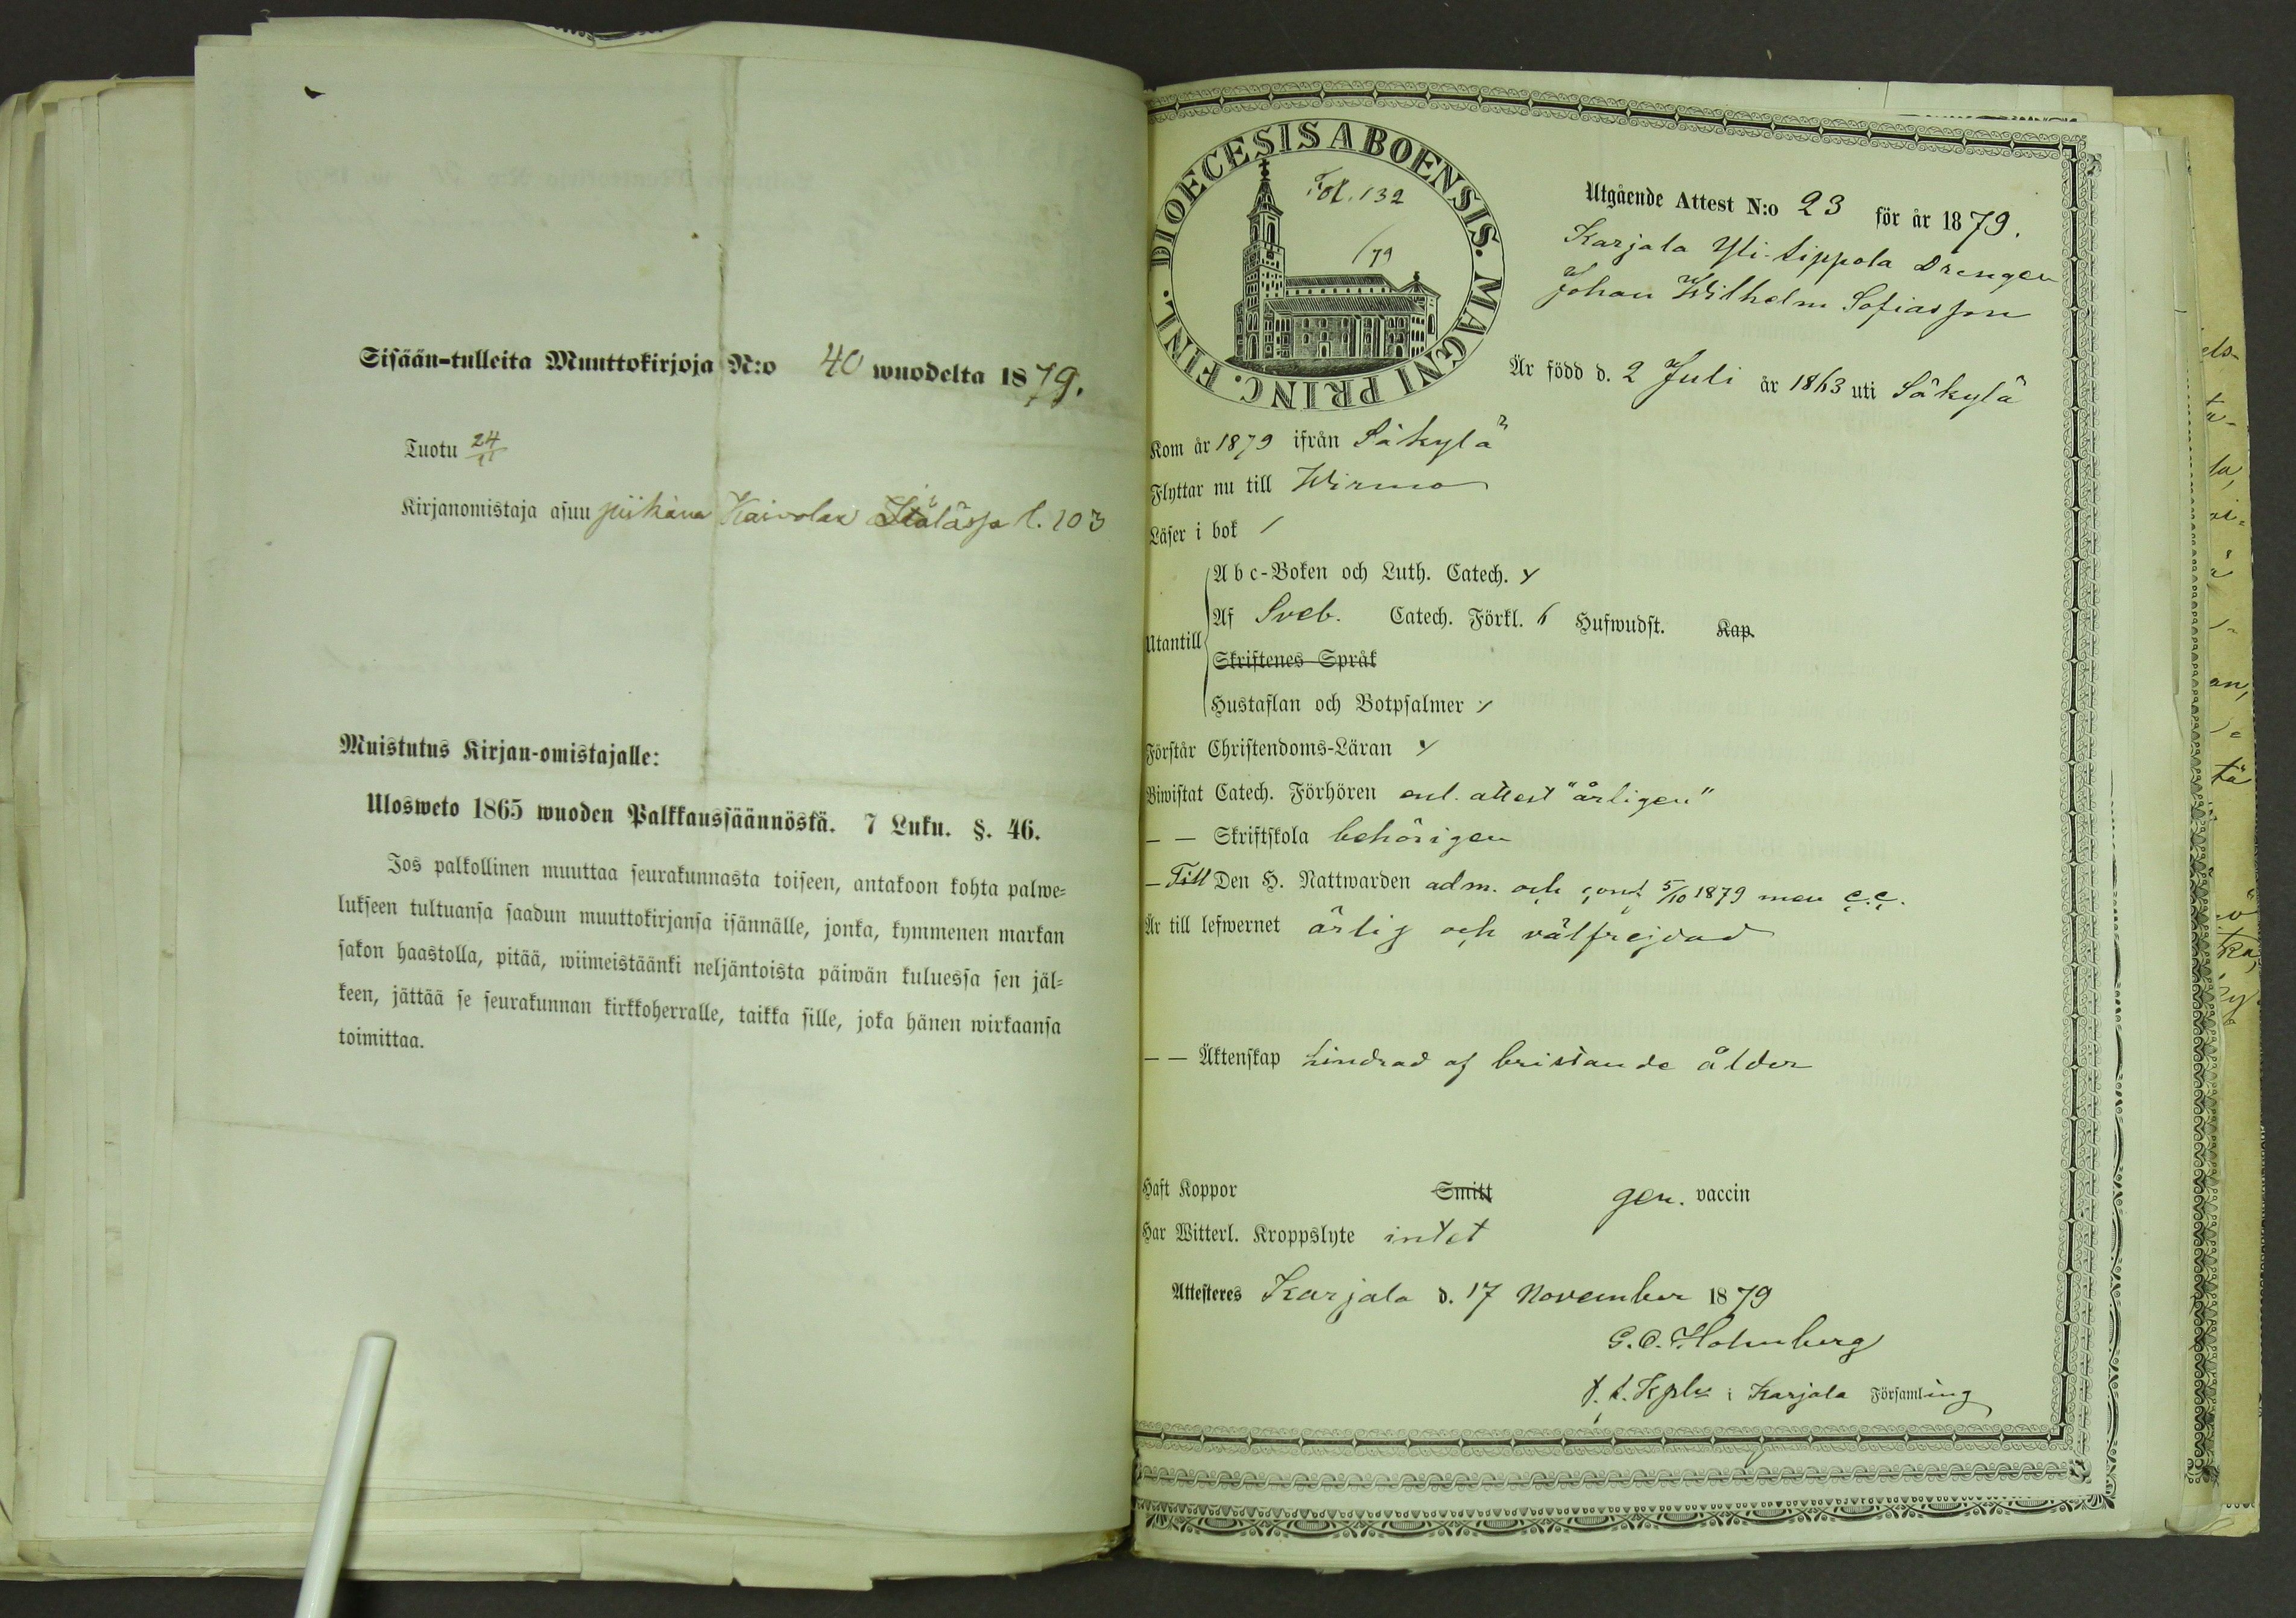 Sisään-tulleita Muuttokirjoja N:o 40 wuodelta 1879.
Tuotu 24/11
Kirjanomistaja asuu piikana Kaivolan l. 103
Muistutus Kirjan-omistajalle:
Ulosweto 1865 wuoden Palkkaussäännöstä. 7 Luku. §. 46.
Jos palkollinen muuttaa seurakunnasta toiseen, antakoon kohta palwe=
lukseen tultuansa saadun muuttokirjansa isännälle, jonka, kymmenen markan
sakon haastolla, pitää, wiimeistäänki neljäntoista päiwän kuluessa sen jäl=
keen, jättää se seurakunnan kirkkoherralle, taikka sille, joka hänen wirkaansa
toimittaa.
DIOECESIS ABOENSIS. MAGNI PRINC. FINL.
Fol. 132
/79
Utgående Attest N:o 23 för år 1879.
Karjala Yli-Lippola Drengen
Johan Wilhelm Sofiasson
Är född d. 2 Juli år 1863 uti Säkylä
Kom år 1879 ifrån Säkylä
Flyttar nu till Wirmo
Läser i bok /
Utantill
A b c-Boken och Luth. Catech. y
Af Sveb. Catech. Förkl. 6 Hufwudst. Kap.
Skriftenes Språk
Hustaflan och Botpsalmer y
Förstår Christendoms-Läran y
Biwistat Catech. Förhören enl. attest "årligen"
— — Skriftskola behörigen
— Till Den H. Nattwarden adm. och conf. 5/10 1879 men c.c.
Är till lefwernet ärlig och välfrejdad
— — Äktenskap hindrad af bristande ålder
Haft Koppor Smitt gen. vaccin
Har Witterl. Kroppslyte intet
Attesteres Karjala d. 17 November 1879
G. O. Holmberg
t. f. Kpln i Karjala Församling